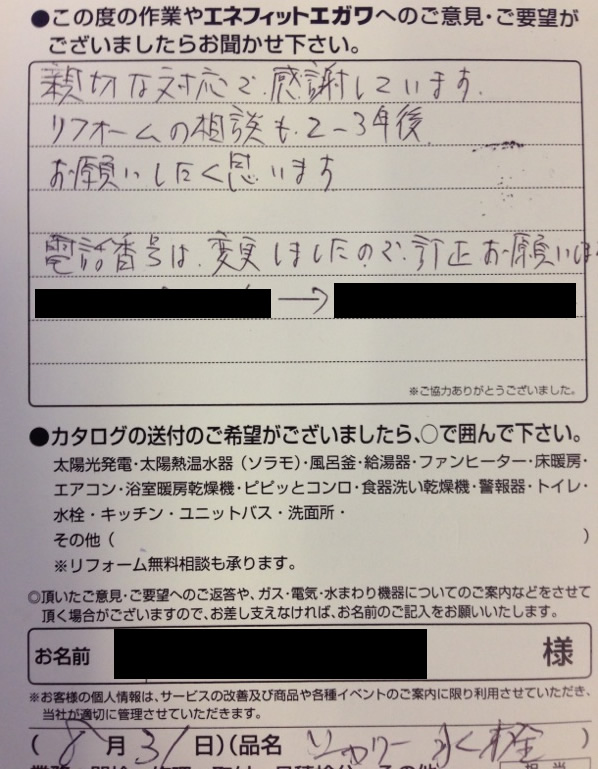 ●この度の作業やエネフィットエガワへのご意見・ご要望が
ございましたらお聞かせ下さい。
親切な対応で、感謝しています。
リフォームの相談も、2〜3年後、
お願いしたく思います
電話番号は、変更しましたので、訂正お願いしま
→
※ご協力ありがとうございました。
●カタログの送付のご希望がございましたら、○で囲んで下さい。
太陽光発電・太陽熱温水器（ソラモ）・風呂釜・給湯器・ファンヒーター・床暖房・
エアコン・浴室暖房乾燥機・ピピッとコンロ・食器洗い乾燥機・警報器・トイレ・
水栓・キッチン・ユニットバス・洗面所・
その他（　　　）
※リフォーム無料相談も承ります。
◎頂いたご意見・ご要望へのご返答や、ガス・電気・水まわり機器についてのご案内などをさせて
頂く場合がございますので、お差し支えなければ、お名前のご記入をお願いいたします。
お名前　様
※お客様の個人情報は、サービスの改善及び商品や各種イベントのご案内に限り利用させていただき、
当社が適切に管理させていただきます。
(8月31日)(品名 シャワー水栓)